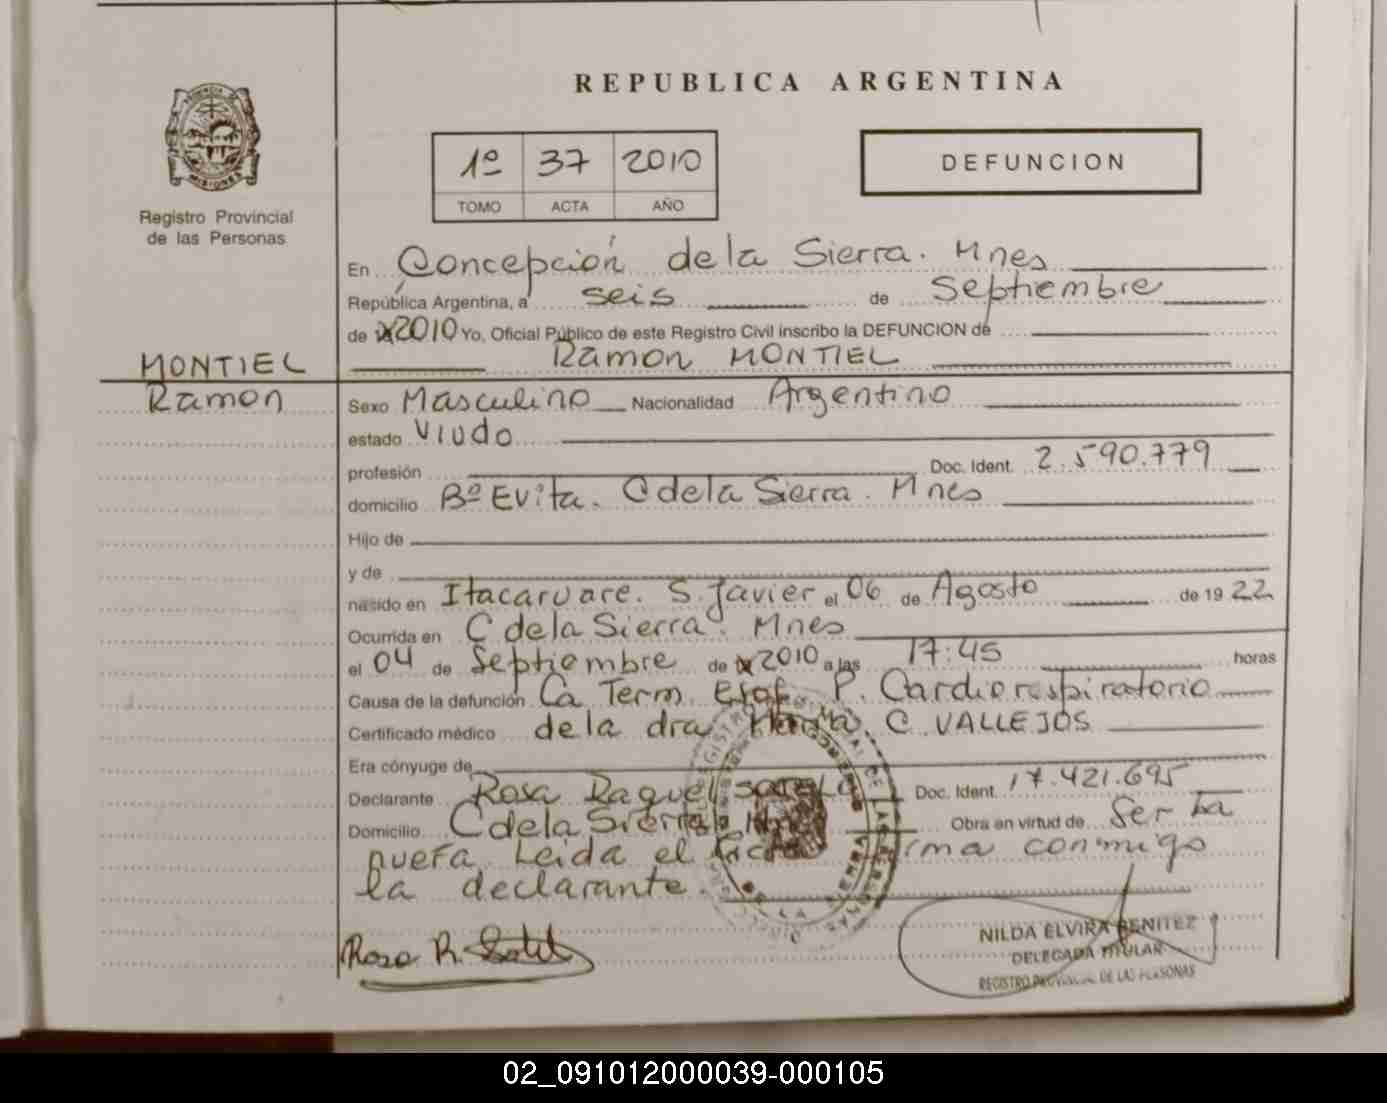 REPUBLICA ARGENTINA
PROVINCIA DE
MISIONES
Registro Provincial
de las Personas
1º 37 2010
TOMO ACTA AÑO
DEFUNCION
En Concepción de la Sierra. Mnes
República Argentina, a seis de Septiembre
de 2010 Yo, Oficial Público de este Registro Civil inscribo la DEFUNCION de
Ramon MONTIEL
MONTIEL
Ramon
Sexo Masculino Nacionalidad Argentino
estado Viudo
profesión Doc. Ident. 2.590.779
domicilio Bº Evita. C de la Sierra. Mnes
Hijo de
y de
nasido en Itacaruare. S. Javier el 06 de Agosto de 1922
Ocurrida en C de la Sierra. Mnes
el 04 de Septiembre de 2010 a las 17:45 horas
Causa de la defunción Ca Term. Esof. P. Cardiorespiratorio
Certificado médico de la dra C. VALLEJOS
Era cónyuge de
Declarante Rosa Raquel Doc. Ident. 17.421.695
Domicilio C de la Sierra Obra en virtud de Ser La
nuera. Leida el Acta firma conmigo
la declarante.
Rosa R.
NILDA ELVIRA BENITEZ
DELEGADA TITULAR
REGISTRO PROVINCIAL DE LAS PERSONAS
02_091012000039-000105